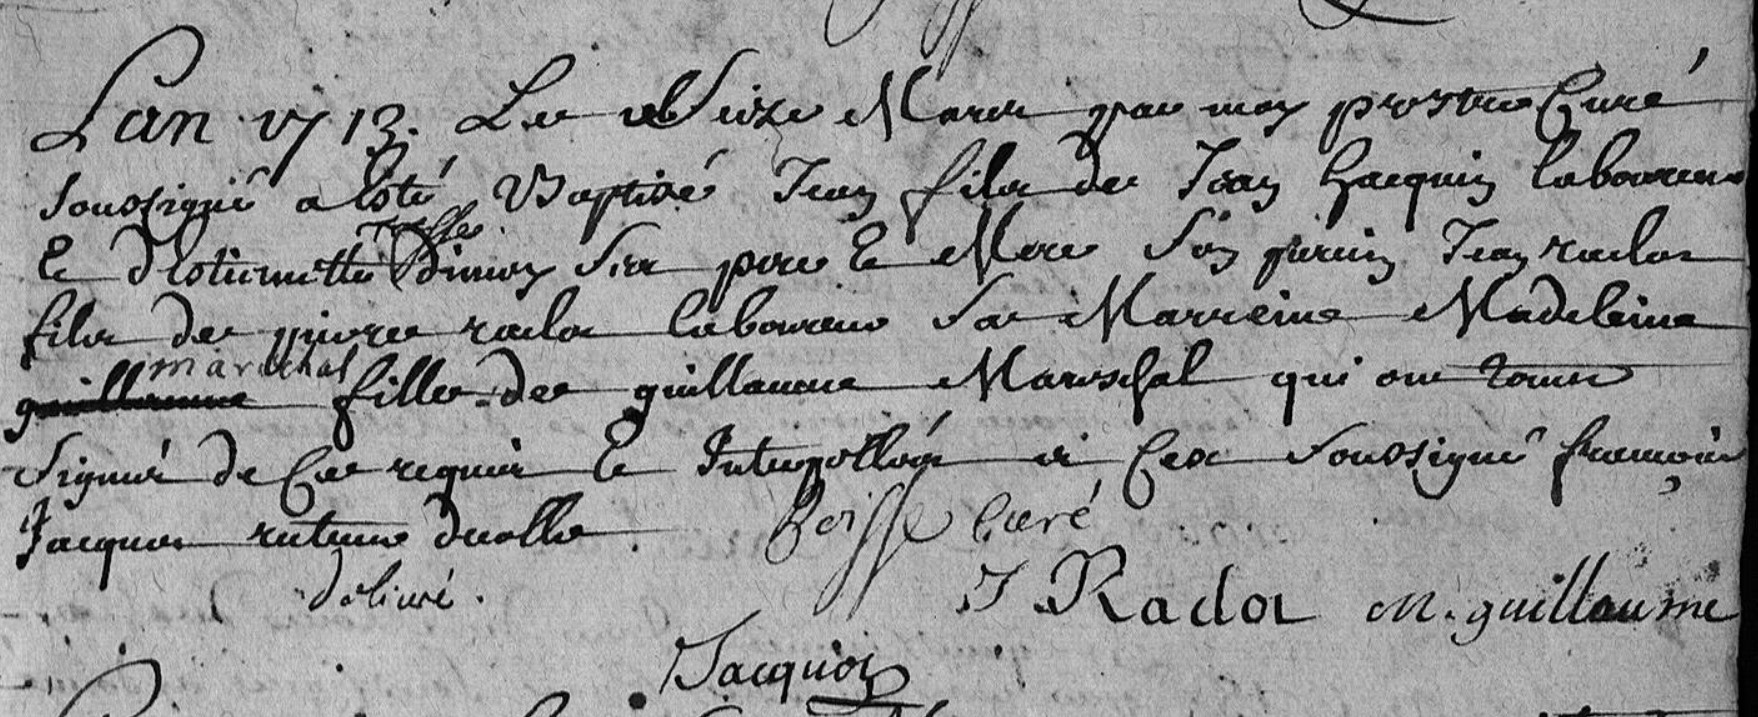 Lan 1713. Le Seize Mars par moy prestre Curé
soussigné a esté Baptisé Jean fils de Jean Jacquin laboureur
et destiennette Simon ses pere et Mere son parein Jean rados
fils de pierre rados laboureur sa Marreine Madeleine
marechal fille de guillaume Mareschal qui ont tous
signés de ce requis et Interpellés
Jacques
Boisse Curé
delivré.
J Rados M. guillaume
Jacquin